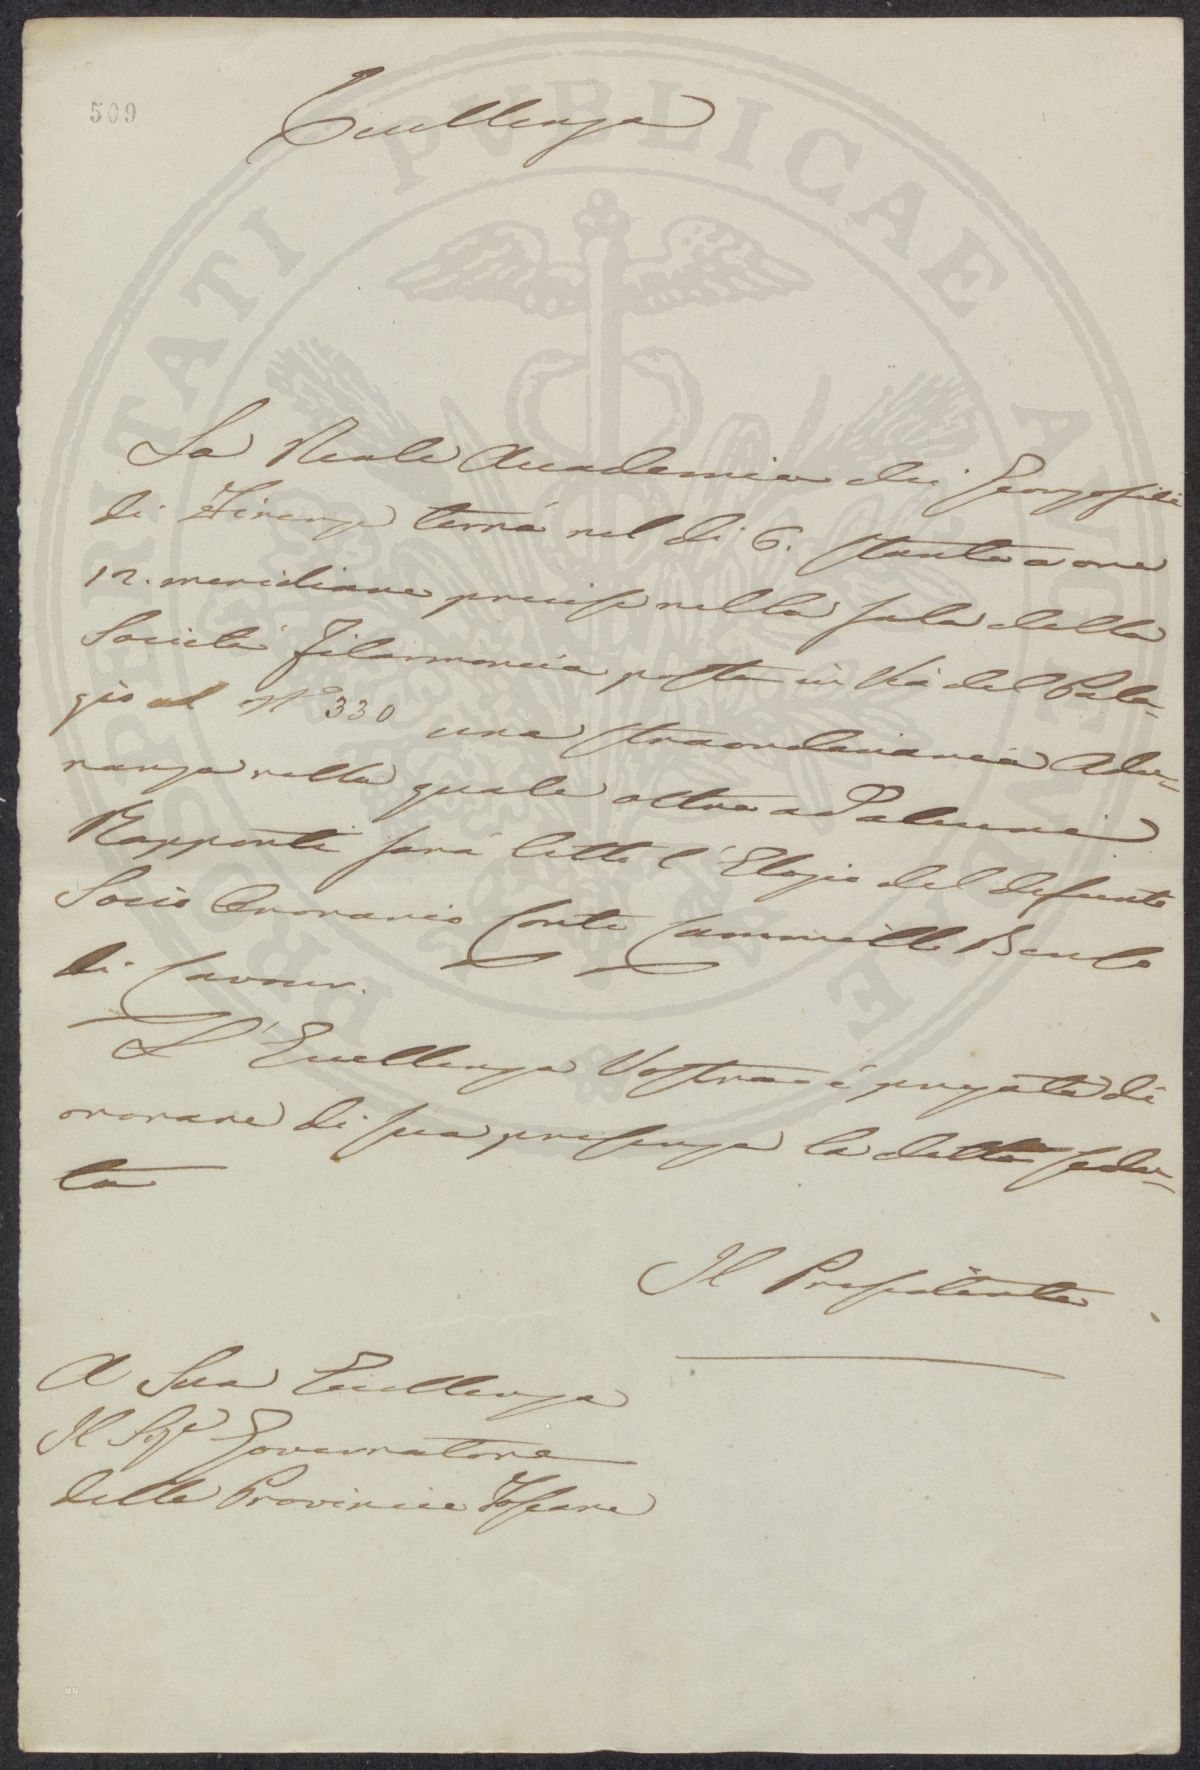 509
Eccellenza
La Reale Accademia dei Georgofili
di Firenze terrà nel dì 6. stante a ore
12. meridiane precise nella sala della
Società Filarmonica posta in Via del Pala-
gio al N° 330 una straordinaria Adu-
nanza nella quale oltre ad alcuni
Rapporti sarà letto l'Elogio del defunto
Socio Onorario Conte Cammillo Benso
di Cavour.
L'Eccellenza Vostra è pregata di
onorare di sua presenza la detta sedu-
ta
Il Presidente
A Sua Eccellenza
Il Sig.e Governatore
delle Provincie Toscane
PROSPERITATI PVBLICAE AVGENDAE